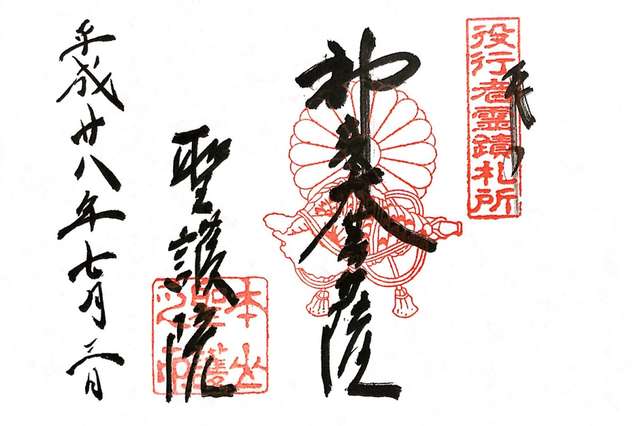 奉拝
役行者霊蹟札所
神変大菩薩
聖護院
本山
聖護
院印
平成廿八年七月二日